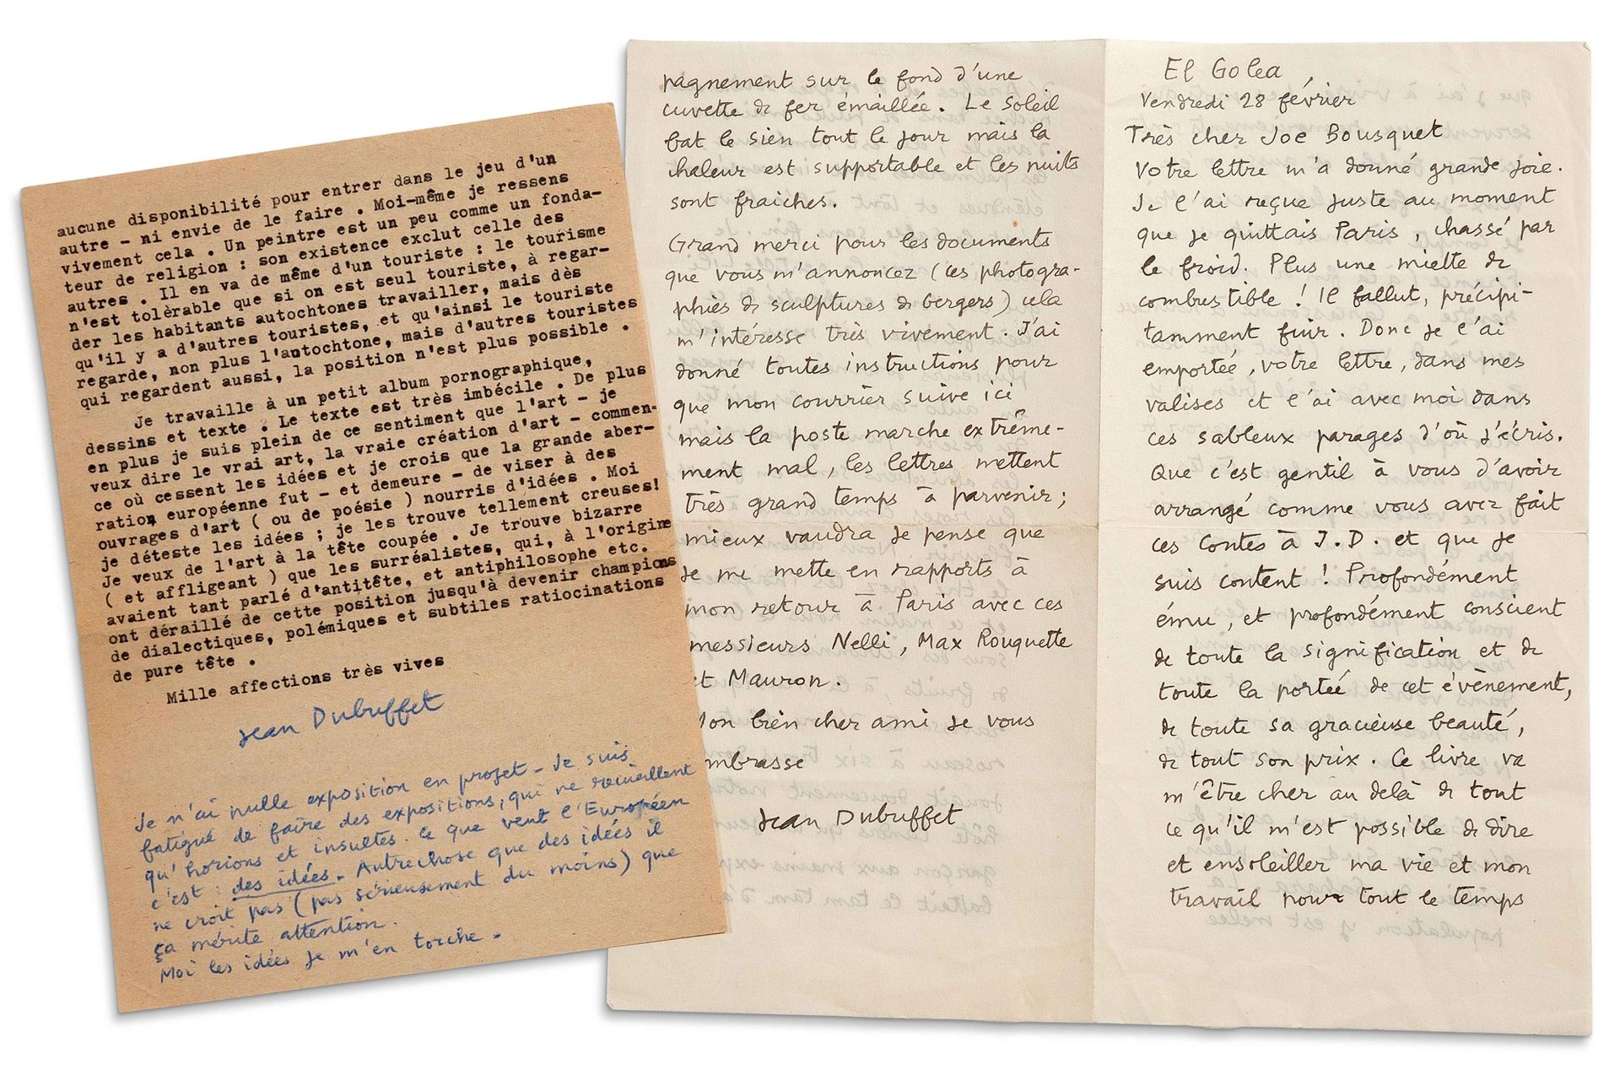 aucune disponibilité pour entrer dans le jeu d'un
autre - ni envie de le faire . Moi-même je ressens
vivement cela . Un peintre est un peu comme un fonda-
teur de religion : son existence exclut celle des
autres . Il en va de même d'un touriste : le tourisme
n'est tolèrable que si on est seul touriste, à regar-
der les habitants autochtones travailler, mais dès
qu'il y a d'autres touristes, et qu'ainsi le touriste
regarde, non plus l'autochtone, mais d'autres touristes
qui regardent aussi, la position n'est plus possible .
Je travaille à un petit album pornographique,
dessins et texte . Le texte est très imbécile . De plus
en plus je suis plein de ce sentiment que l'art - je
veux dire le vrai art, la vraie création d'art - commen-
ce où cessent les idées et je crois que la grande aber-
ration européenne fut - et demeure - de viser à des
ouvrages d'art ( ou de poésie ) nourris d'idées . Moi
je déteste les idées ; je les trouve tellement creuses!
Je veux de l'art à la tête coupée . Je trouve bizarre
( et affligeant ) que les surréalistes, qui, à l'origine
avaient tant parlé d'antitête, et antiphilosophe etc.
ont déraillé de cette position jusqu'à devenir champions
de dialectiques, polémiques et subtiles ratiocinations
de pure tête .
Mille affections très vives
Jean Dubuffet
Je n'ai nulle exposition en projet - Je suis
fatigué de faire des expositions, qui ne recueillent
qu'horions et insultes. Ce que veut l'Européen
c'est : des idées. Autrechose que des idées il
ne croit pas (pas sérieusement du moins) que
ça mérite attention.
Moi les idées je m'en torche -
pagnement sur le fond d'une
cuvette de fer émaillée. Le soleil
bat le sien tout le jour mais la
chaleur est supportable et les nuits
sont fraiches.
Grand merci pour les documents
que vous m'annoncez (ces photogra-
phies de sculptures de bergers) cela
m'intéresse très vivement. J'ai
donné toutes instructions pour
que mon courrier suive ici
mais la poste marche extrême-
ment mal, les lettres mettent
très grand temps à parvenir ;
mieux vaudra je pense que
je me mette en rapports à
mon retour à Paris avec ces
messieurs Nelli, Max Rouquette
et Mauron.
Mon bien cher ami je vous
mbrasse
Jean Dubuffet
El Golea
Vendredi 28 février
Très cher Joe Bousquet
Votre lettre m'a donné grande joie.
Je l'ai reçue juste au moment
que je quittais Paris, chassé par
le froid. Plus une miette de
combustible ! Il fallut, précipi-
tamment fuir. Donc je l'ai
emportée, votre lettre, dans mes
valises et l'ai avec moi dans
ces sableux parages d'où j'écris.
Que c'est gentil à vous d'avoir
arrangé comme vous avez fait
ces Contes à J.D. et que je
suis content ! Profondément
ému, et profondément conscient
de toute la signification et de
toute la portée de cet évènement,
de toute sa gracieuse beauté,
de tout son prix. Ce livre va
m'être cher au delà de tout
ce qu'il m'est possible de dire
et ensoleiller ma vie et mon
travail pour tout le temps